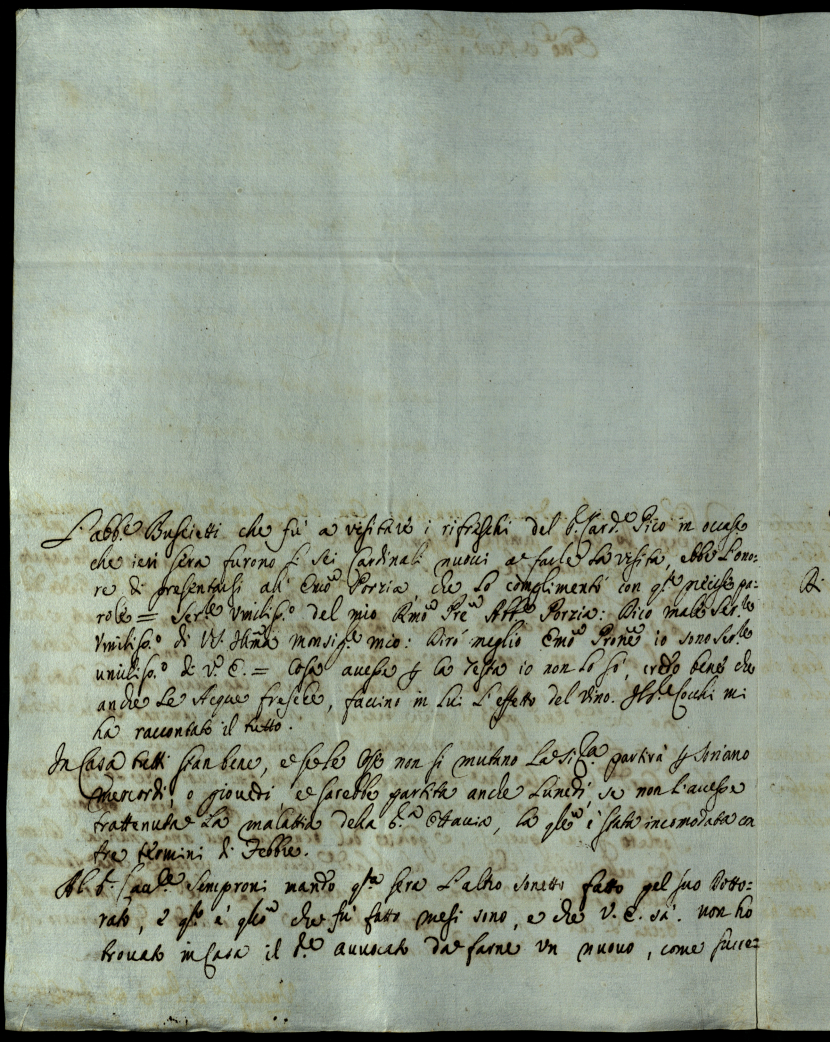 L'abb.e Buscietti che fu a visitare i rifreschi del S. Card.e Pico in occas.e
che ieri sera furono li sei Cardinali nuovi a farle la visita, ebbe l'ono:
re di presentarsi all' Emo Porzia, che lo complimentò con q.te precise pa:
role = Ser.re Umiliss.o del mio Rmo Pre Abb.e Porzia: Dico male Ser.re
Umiliss.o di VV. Illma monsig.re mio: Dirò meglio Emo Prone io sono Ser.re
umiliss.o di V. E. = Cosa avesse p la testa io non lo so, credo bene che
anche le Acque fresche, faccino in lui l'effetto del vino. Il S.e Cocchi mi
ha raccontato il tutto.
In Casa tutti stan bene, e se le cose non si mutano La Si.ra partirà p Soriano
Mercordi, o giovedi e sarebbe partita anche Lunedi, se non l'avesse
trattenuta la malattia della S.a Ottavia, la qle è stata incomodata con
tre termini di Febbre.
Al S. Cav.re Semproni mando q.ta sera l'altro sonetto fatto pel suo Dotto:
rato, e q.to è qllo che fu fatto mesi sono, e che V. E. sà. non ho
trovato in Casa il S.e avvocato da farne un nuovo, come succe: